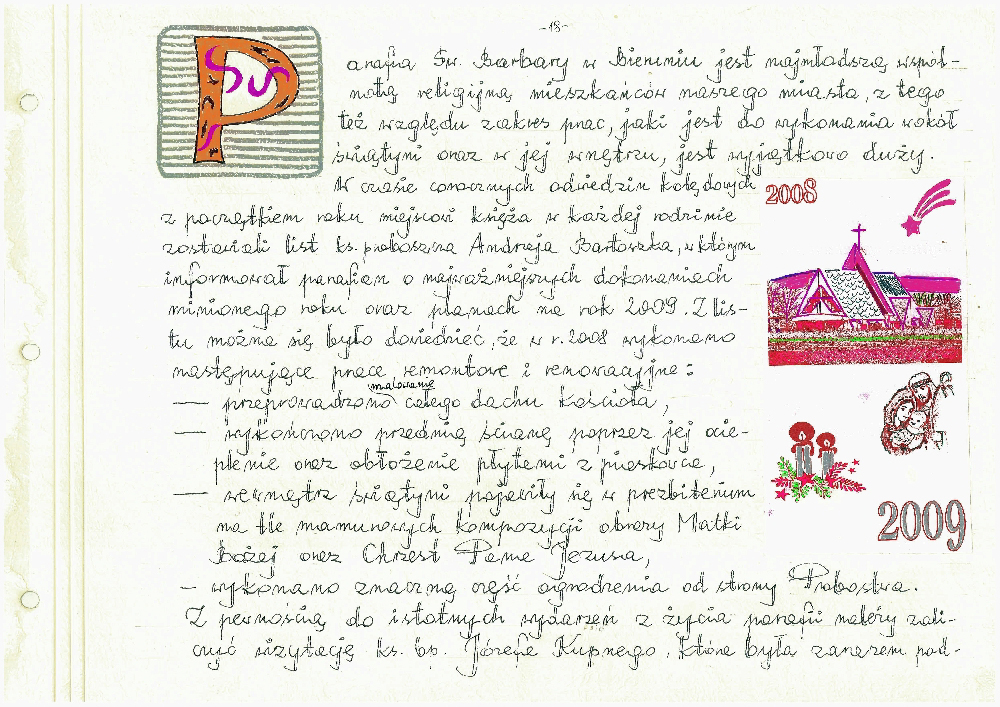 -18-
Parafia Św. Barbary w Bieruniu jest najmłodszą wspól-
notą religijną mieszkańców naszego miasta, z tego
też względu zakres prac, jaki jest do wykonania wokół
świątyni oraz w jej wnętrzu, jest wyjątkowo duży.
W czasie corocznych odwiedzin kolędowych
2008
z początkiem roku miejscowi księża w każdej rodzinie
zostawiali list ks. proboszcza Andrzeja Bartoszka, w którym
informował parafian o najważniejszych dokonaniach
minionego roku oraz planach na rok 2009. Z lis-
tu można się było dowiedzieć, że w r. 2008 wykonano
następujące prace remontowe i renowacyjne:
— przeprowadzono malowanie całego dachu kościoła,
— wykończono przednią ścianę poprzez jej ocie-
plenie oraz obłożenie płytami z piaskowca,
— wewnątrz świątyni pojawiły się w prezbiterium
na tle marmurowych kompozycji obrazy Matki
Bożej oraz Chrzest Pana Jezusa,
2009
— wykonano znaczną część ogrodzenia od strony Probostwa.
Z pewnością do istotnych wydarzeń z życia parafii należy zali-
czyć wizytację ks. bp. Józefa Kupnego, która była zarazem pod-